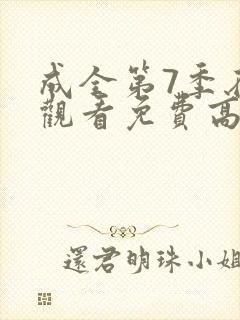 成全第7季在
觀看免費高
還君明珠小姐